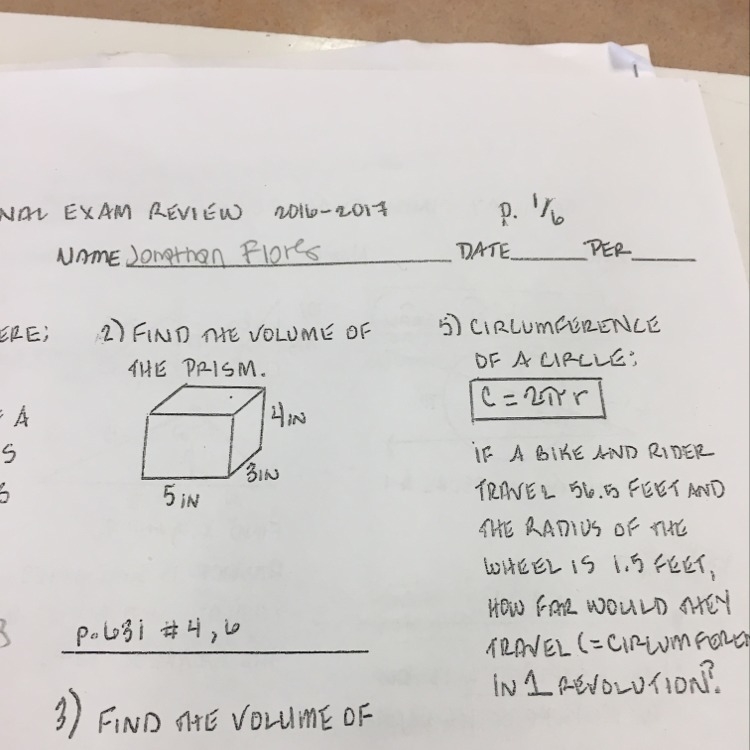 NAL EXAM REVIEW 2016-2017 P. 1/6
NAME Jonathan Flores DATE PER
ERE;
A
S
2) FIND THE VOLUME OF
THE PRISM.
4IN
3IN
5 IN
p.631 #4,6
3) FIND THE VOLUME OF
5) CIRCUMFERENCE
OF A CIRCLE:
C = 2πr
IF A BIKE AND RIDER
TRAVEL 56.5 FEET AND
THE RADIUS OF THE
WHEEL IS 1.5 FEET,
HOW FAR WOULD THEY
TRAVEL (=CIRCUMFEREN
IN 1 REVOLUTION?